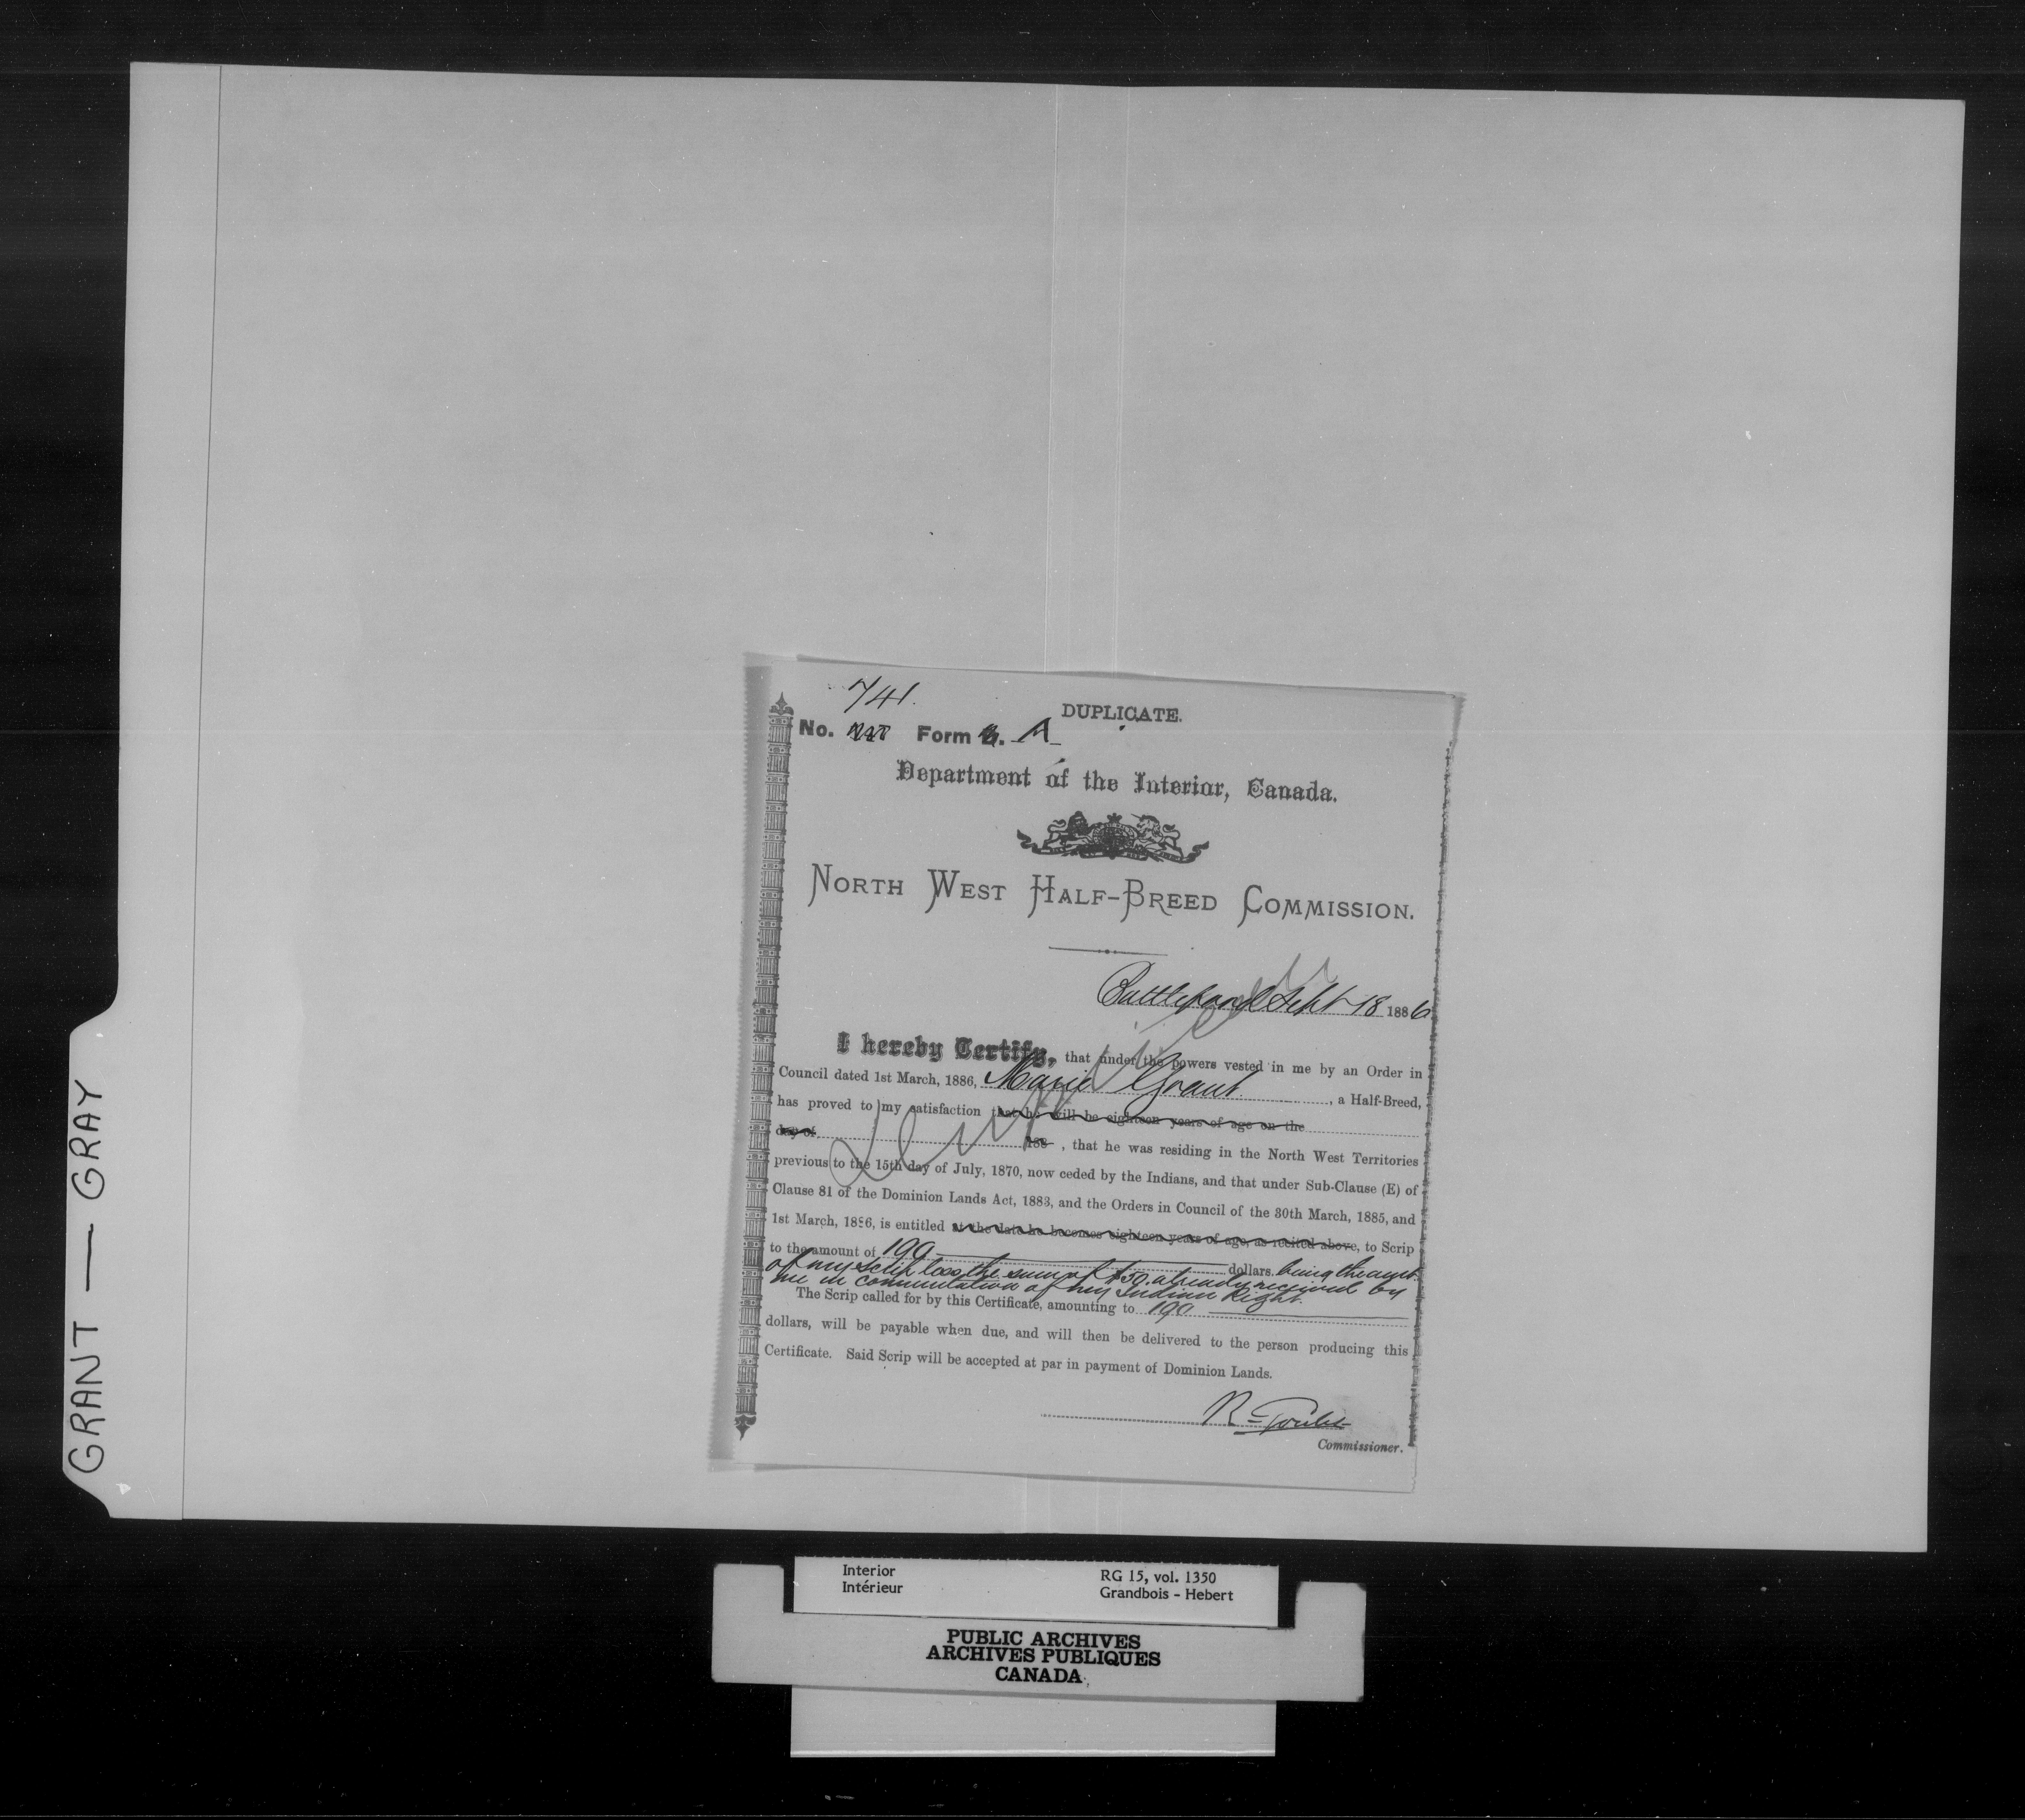 GRANT — GRAY
741.
DUPLICATE.
No. Form A
Department of the Interior, Canada.
NORTH WEST HALF-BREED COMMISSION.
Battleford Sept 18 1886
I hereby Certify, that under the powers vested in me by an Order in
Council dated 1st March, 1886, Marie Grant , a Half-Breed,
has proved to my satisfaction that he will be eighteen years of age on the
day of 188 , that he was residing in the North West Territories
previous to the 15th day of July, 1870, now ceded by the Indians, and that under Sub-Clause (E) of
Clause 81 of the Dominion Lands Act, 1883, and the Orders in Council of the 30th March, 1885, and
1st March, 1886, is entitled at the date he becomes eighteen years of age, as recited above, to Scrip
to the amount of 190 dollars. being the amt.
of my scrip less the sum of $50 already received by
me in commutation of my Indian Right.
The Scrip called for by this Certificate, amounting to 190
dollars, will be payable when due, and will then be delivered to the person producing this
Certificate. Said Scrip will be accepted at par in payment of Dominion Lands.
R Goulet
Commissioner.
Interior
Intérieur
RG 15, vol. 1350
Grandbois - Hebert
PUBLIC ARCHIVES
ARCHIVES PUBLIQUES
CANADA